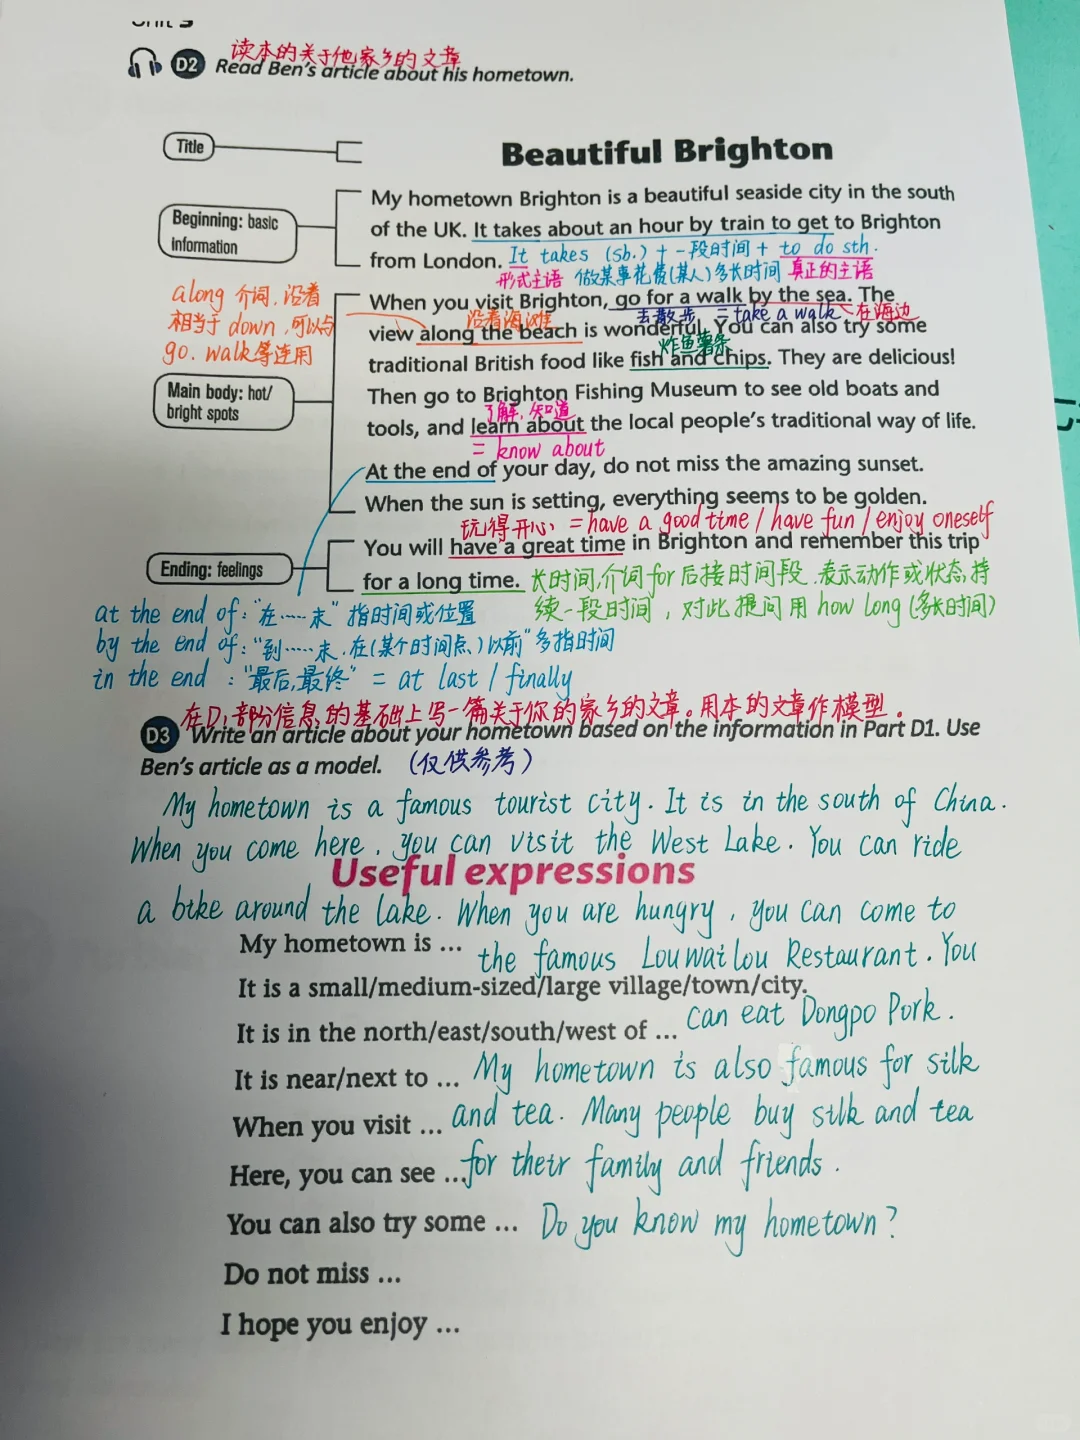 Unit 5
读本的关于他家乡的文章
D2 Read Ben's article about his hometown.
Title
Beautiful Brighton
Beginning: basic information
My hometown Brighton is a beautiful seaside city in the south
of the UK. It takes about an hour by train to get to Brighton
from London. It takes (sb.) + 一段时间 + to do sth.
形式主语 做某事花费(某人)多长时间 真正的主语
along 介词, 沿着
相当于 down, 可以与
go. walk等连用
When you visit Brighton, go for a walk by the sea. The
去散步 = take a walk 在海边
沿着海滩
view along the beach is wonderful. You can also try some
炸鱼薯条
traditional British food like fish and chips. They are delicious!
Main body: hot/
bright spots
Then go to Brighton Fishing Museum to see old boats and
了解, 知道
tools, and learn about the local people's traditional way of life.
= know about
At the end of your day, do not miss the amazing sunset.
When the sun is setting, everything seems to be golden.
玩得开心 = have a good time / have fun / enjoy oneself
Ending: feelings
You will have a great time in Brighton and remember this trip
for a long time. 长时间,介词for后接时间段,表示动作或状态持
续一段时间, 对此提问用 how long (多长时间)
at the end of: "在……末" 指时间或位置
by the end of: "到……末, 在(某个时间点)以前" 多指时间
in the end : "最后,最终" = at last / finally
在D1部分信息的基础上写一篇关于你的家乡的文章。用本的文章作模型.
D3 Write an article about your hometown based on the information in Part D1. Use
Ben's article as a model. (仅供参考)
My hometown is a famous tourist city. It is in the south of China.
When you come here, you can visit the West Lake. You can ride
Useful expressions
a bike around the lake. When you are hungry, you can come to
My hometown is ...
the famous Louwailou Restaurant. You
It is a small/medium-sized/large village/town/city.
can eat Dongpo Pork.
It is in the north/east/south/west of ...
It is near/next to ... My hometown is also famous for silk
When you visit ... and tea. Many people buy silk and tea
Here, you can see ... for their family and friends.
You can also try some ... Do you know my hometown?
Do not miss ...
I hope you enjoy ...